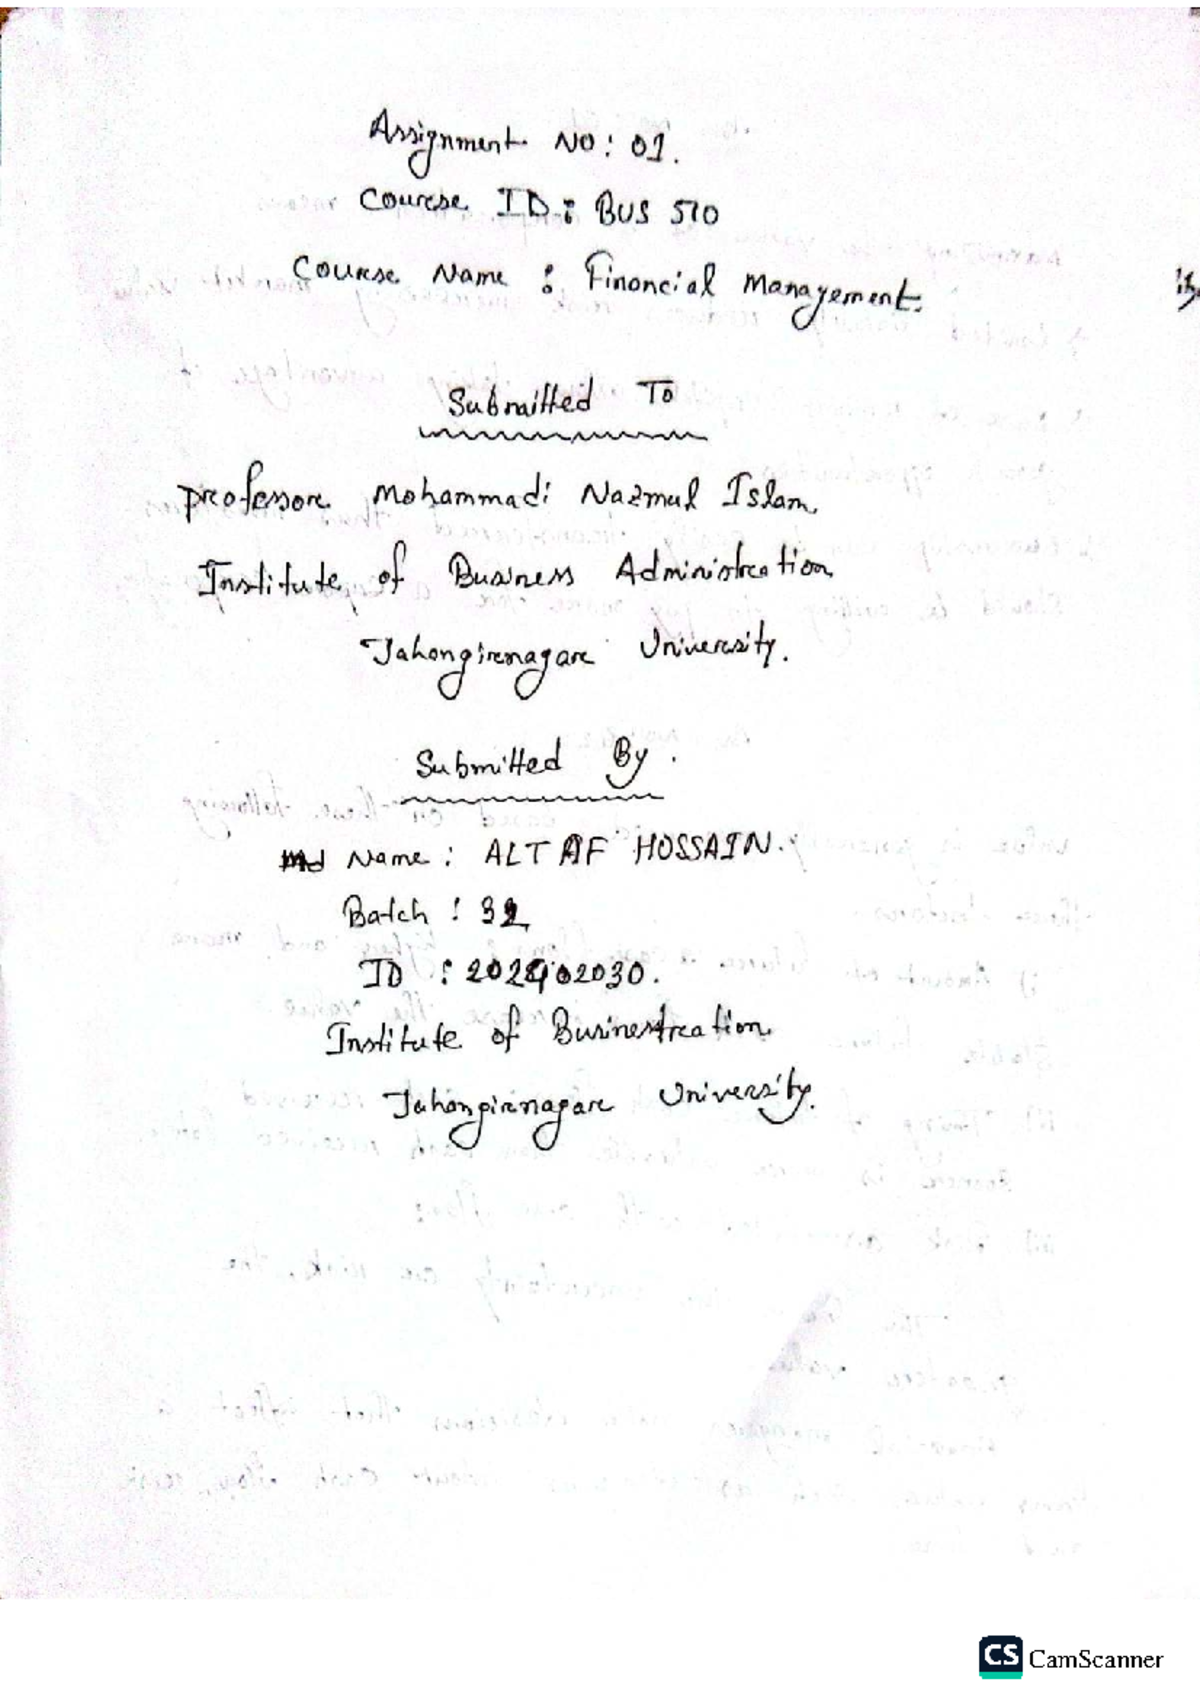 Assignment NO: 01.
Course ID: BUS 510
Course Name: Financial Management.
Submitted To
Professor Mohammadi Nazmul Islam
Institute of Business Administration
Jahangirnagar University.
Submitted By.
Name: ALTAF HOSSAIN.
Batch: 32
ID:
Institute of Businestration
Jahangirnagar University.
CS CamScanner